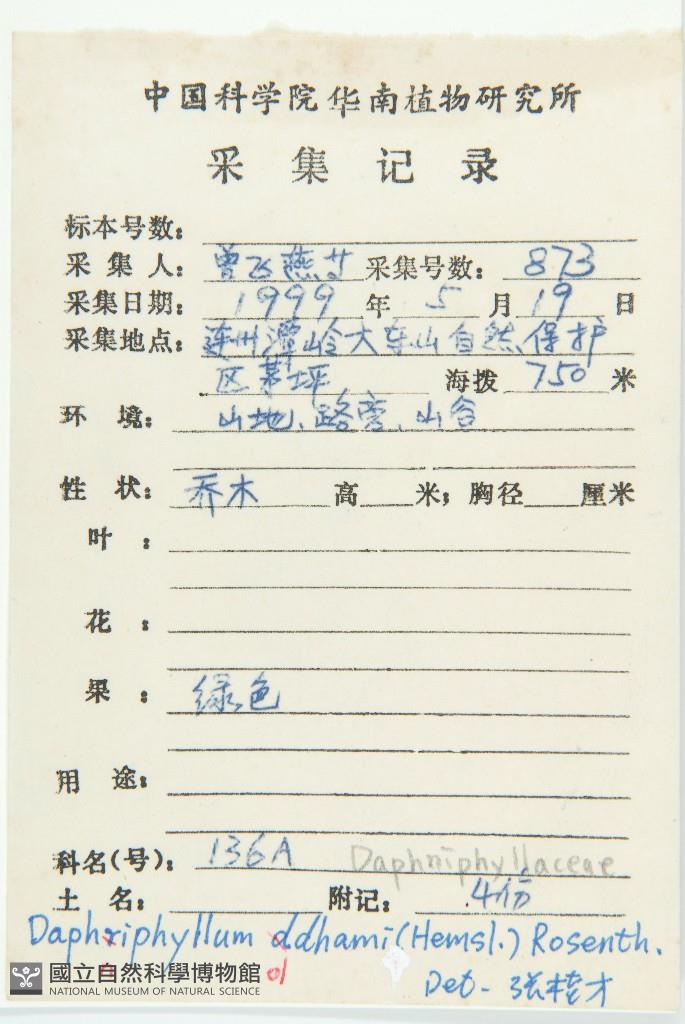 中国科学院华南植物研究所
采集记录
标本号数：
采集人：曾飞燕等 采集号数：873
采集日期：1999年5月19日
采集地点：连州潭岭大东山自然保护
区茅坪 海拨 750 米
环境：山地、路旁、山谷
性状：乔木 高 米；胸径 厘米
叶：
花：
果：绿色
用途：
科名(号)：136A Daphniphyllaceae
土名： 附记：4份
Daphxiphyllum ddhami (Hemsl.) Rosenth.
n ol
Det- 张桂才
國立自然科學博物館
NATIONAL MUSEUM OF NATURAL SCIENCE